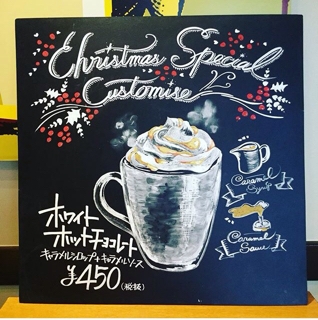 Christmas Special
Customise
Caramel
Syrup
Caramel
Sauce
ホワイト
ホットチョコレート
キャラメルシロップ+キャラメルソース
¥450(税抜)